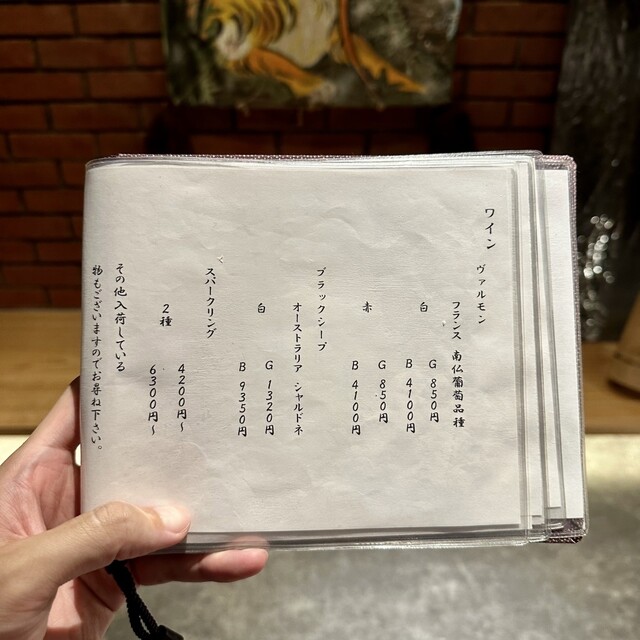 ワイン
ヴァルモン
フランス 南仏葡萄品種
白 G 850円
B 4100円
赤 G 850円
B 4100円
ブラックシープ
オーストラリア シャルドネ
白 G 1320円
B 9350円
スパークリング
2種 4200円〜
6300円〜
その他入荷している
物もございますのでお尋ね下さい。